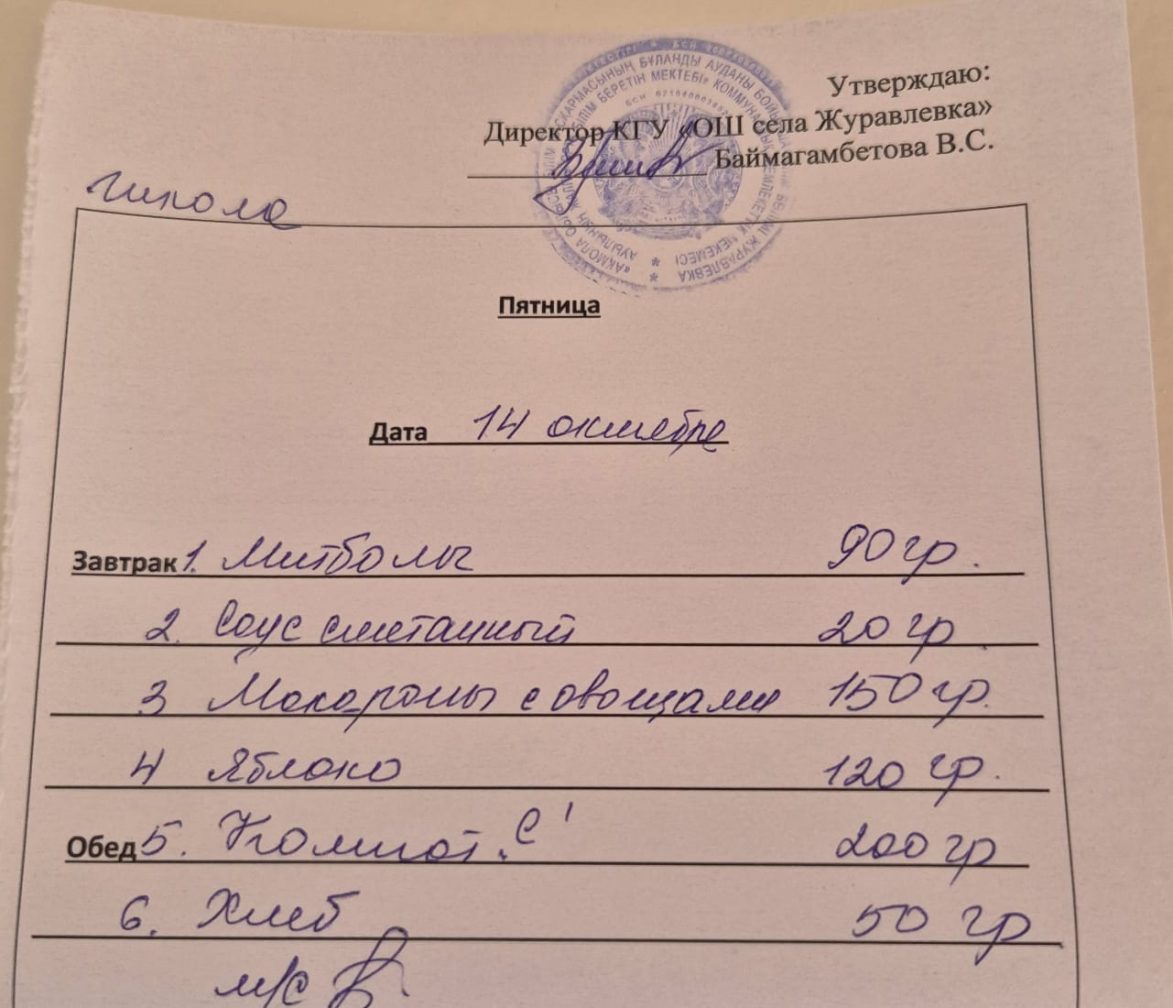 Утверждаю:
Директор КГУ «ОШ села Журавлевка»
Баймагамбетова В.С.
школа
Пятница
Дата 14 октября
Завтрак 1. Митболы 90 гр.
2. Соус сметанный 20 гр.
3 Макароны с овощами 150 гр.
4 Яблоко 120 гр.
Обед 5. Компот. "С" 200 гр
6. Хлеб 50 гр
м/с